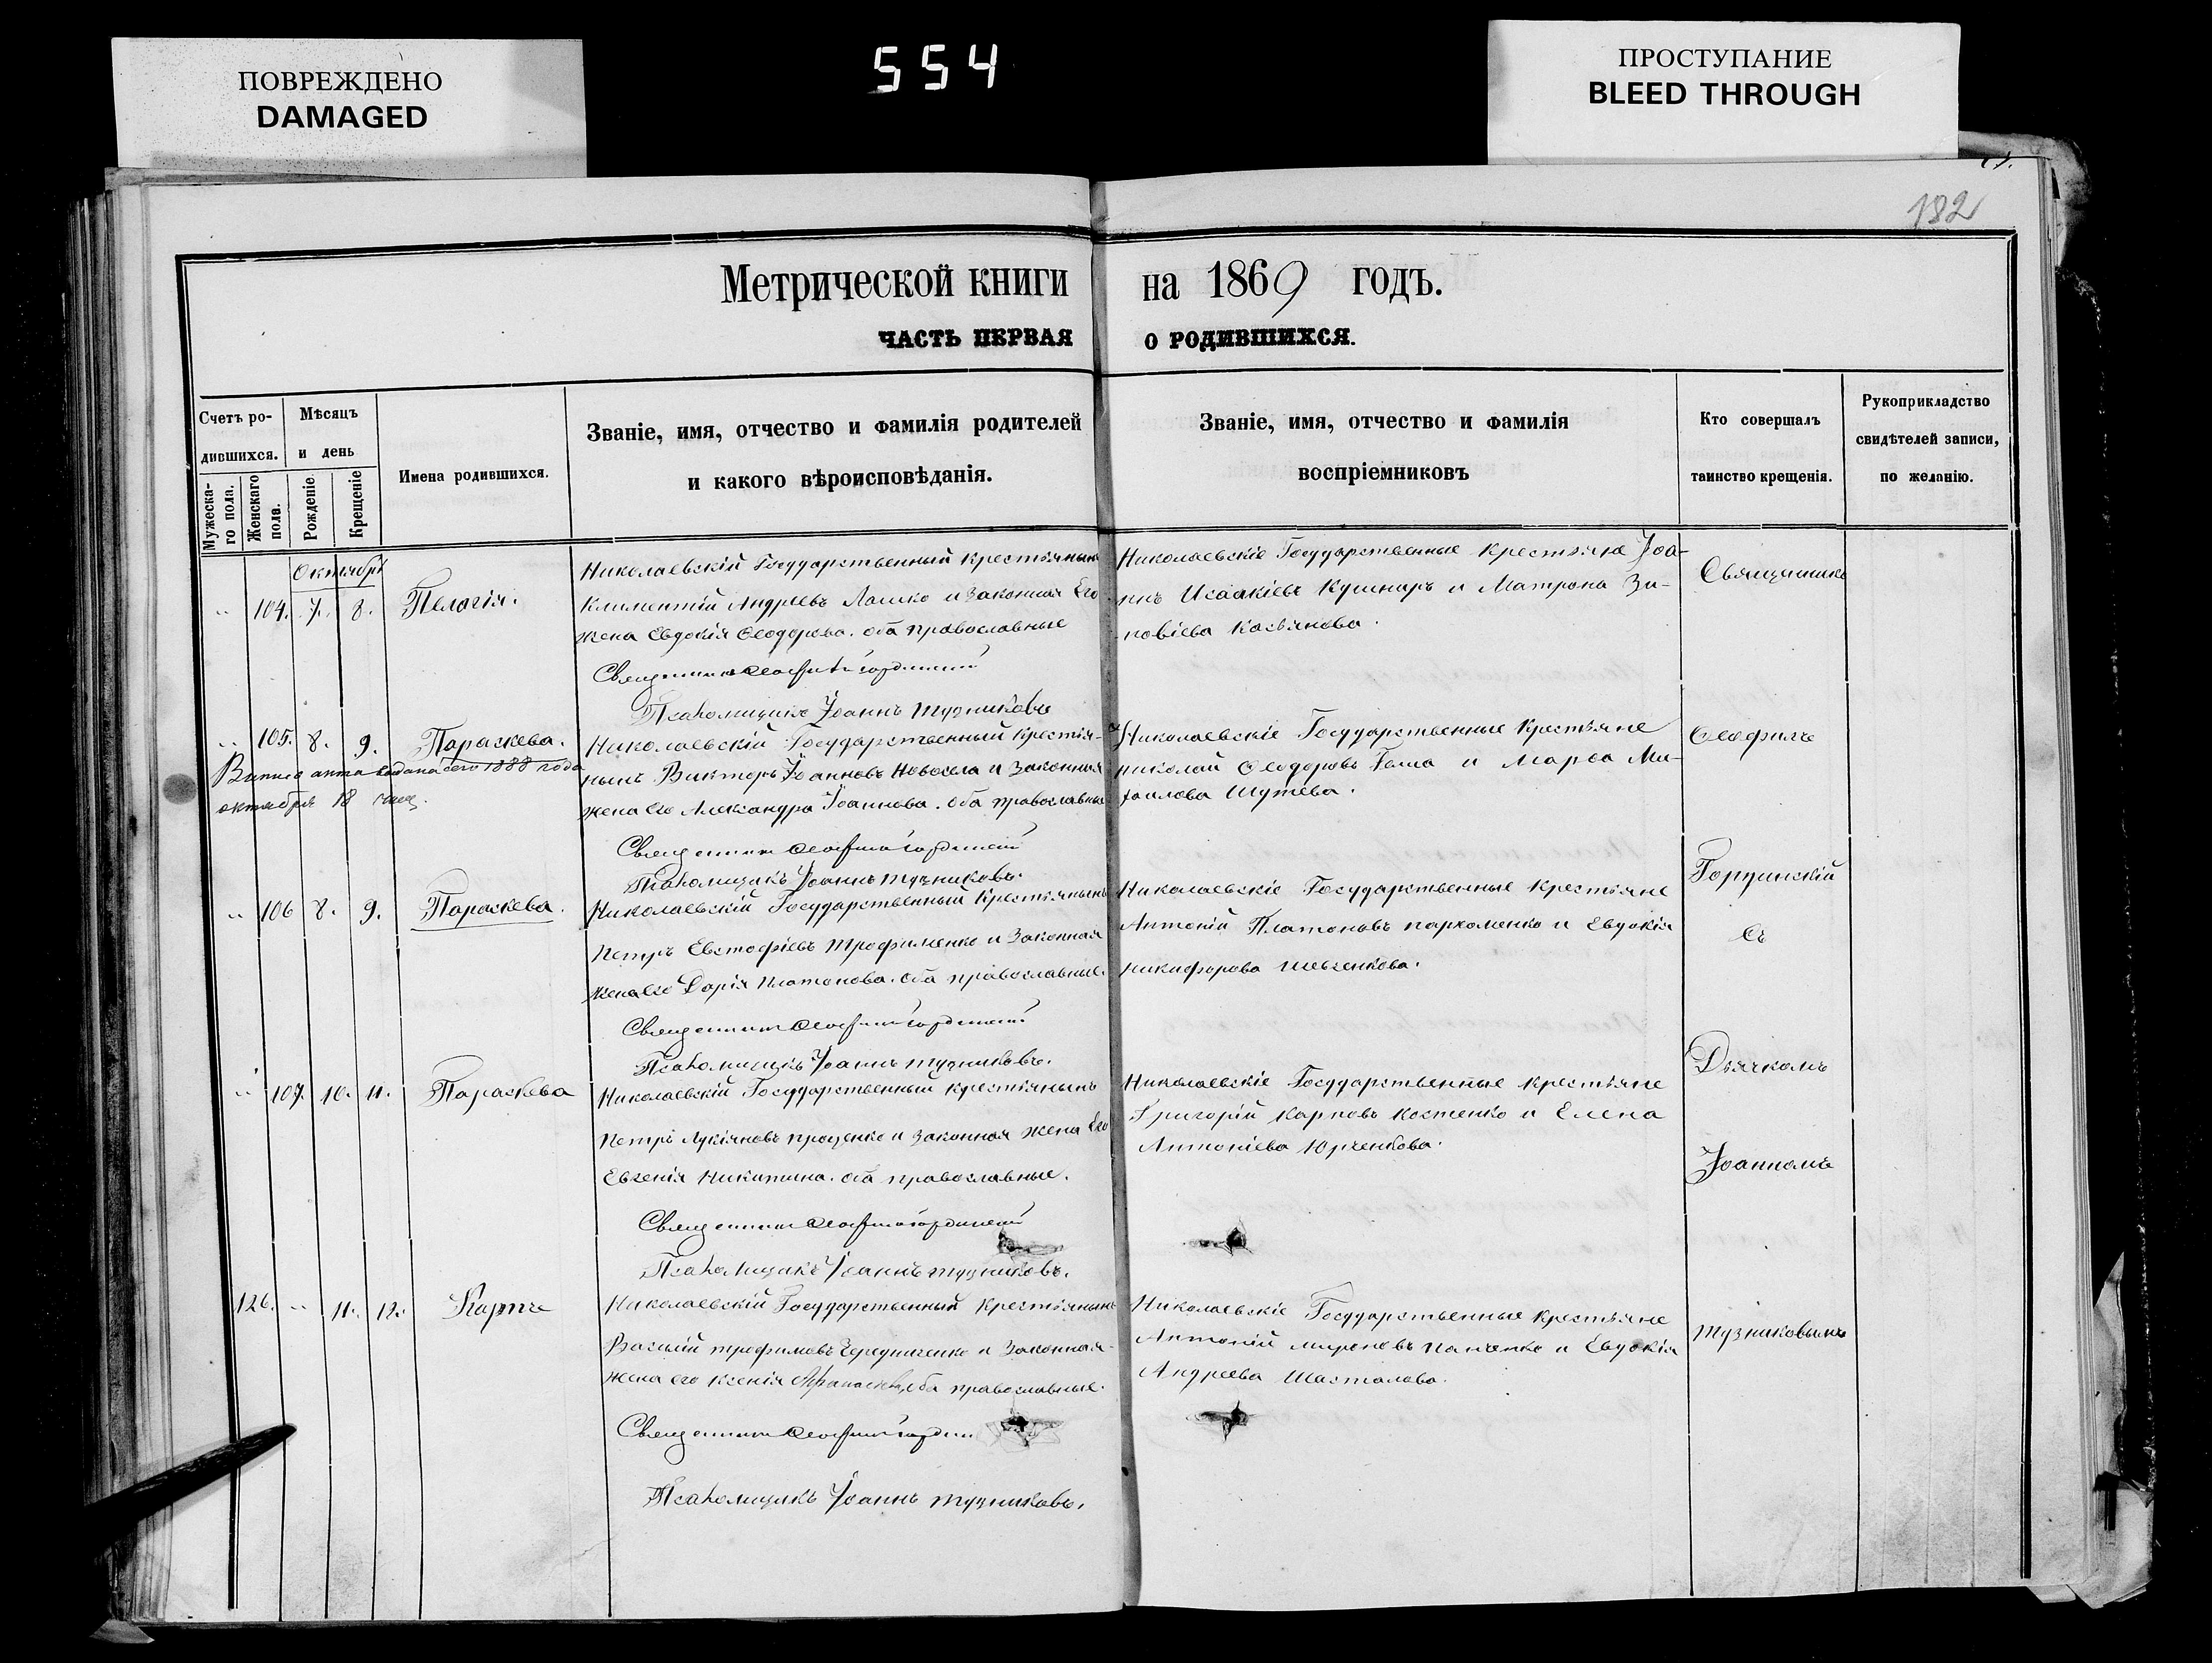 ПОВРЕЖДЕНО
DAMAGED
554
ПРОСТУПАНИЕ
BLEED THROUGH
182
Метрической книги на 1869 годъ.
ЧАСТЬ ПЕРВАЯ О РОДИВШИХСЯ.
Счетъ ро-
дившихся.
Мужеска-
го пола.
Женскаго
пола.
Мѣсяцъ
и день
Рожденіе.
Крещеніе
Имена родившихся.
Званіе, имя, отчество и фамилія родителей
и какого вѣроисповѣданія.
Званіе, имя, отчество и фамилія
воспріемниковъ
Кто совершалъ
таинство крещенія.
Рукоприкладство
свидѣтелей записи,
по желанію.
Октябрь
104. 7. 8. Пелагія.
Николаевскій Государственный Крестьянинъ
Климентій Андреевъ Лашко и Законная Его
жена Евдокія Ѳеодорова. оба православные
Священникъ
Псаломщикъ Іоаннъ Тузниковъ
Николаевскіе Государственные Крестьяне Іоа-
ннъ Исаакіевъ Кушнаръ и Матрона Зи-
новіева Касьянова.
105. 8. 9. Параскева.
октября 18
Николаевскій Государственный Крестья-
нинъ Викторъ Іоанновъ Новосела и Законная
жена его Александра Іоаннова. оба православные
Священникъ
Псаломщикъ Іоаннъ Тузниковъ.
Николаевскіе Государственные Крестьяне
Николай Ѳеодоровъ Гаша и Марѳа Ми-
хаилова Шутева.
106 8. 9. Параскева.
Николаевскій Государственный Крестьянинъ
Петръ Евстафіевъ Трофименко и Законная
жена его Дарія Платонова. оба православные.
Священникъ
Псаломщикъ Іоаннъ Тузниковъ.
Николаевскіе Государственные Крестьяне
Антоній Платоновъ пархоменко и Евдокія
Никифорова Шевченкова.
107. 10. 11. Параскева
Николаевскій Государственный крестьянинъ
Петръ Лукіяновъ проценко и Законная жена Его
Евгенія Никитина. оба православные.
Священникъ
Псаломщикъ Іоаннъ Тузниковъ.
Николаевскіе Государственные Крестьяне
Григорій Карповъ Костенко и Елена
Антоніева Юрченкова.
126. 11. 12. Карпъ
Николаевскій Государственный Крестьянинъ
Василій Трофимовъ Чередниченко и Законная
жена его Ксенія оба православные.
Священникъ
Псаломщикъ Іоаннъ Тузниковъ.
Николаевскіе Государственные Крестьяне
Антоній Мироновъ Панченко и Евдокія
Андреева Шасталова.
Священникъ
Ѳеофилъ
Гординскій
съ
Дьячкомъ
Іоанномъ
Тузниковымъ